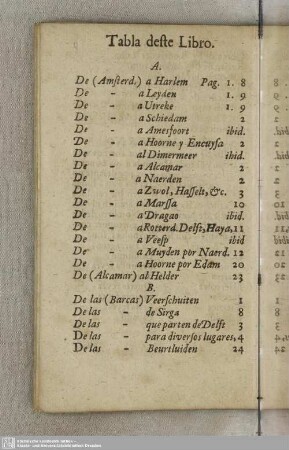 Tabla deste Libro.
A.
De (Amsterd.) a Harlem Pag. 1. 8
De - a Leyden 1. 9
De - a Utreke 1. 9
De - a Schiedam 2
De - a Amersfoort ibid.
De - a Hoorne y Encuysa 2
De - al Dimermeer ibid.
De - a Alcamar 2
De - a Naerden 2
De - a Zwol, Hasselt, &c. 3
De - a Marssa 10
De - a Dragao ibid.
De - a Roterd. Delft, Haya, 11
De - a Veesp ibid
De - a Muyden por Naerd. 12
De - a Hoorne por Edam 20
De (Alcamar) al Helder 23
B.
De las (Barcas) Veerschuiten 1
De las - de Sirga 8
De las - que parten de Delft 3
De las - para diversos lugares, 4
De las - Beurtluiden 24